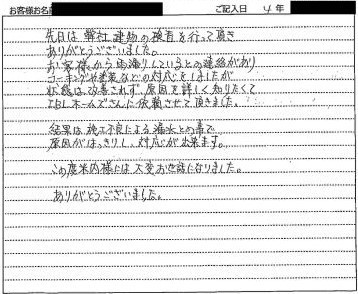 お客様お名前
ご記入日 4年
先日は弊社建物の検査を行って頂き
ありがとうございました。
お客様から雨漏りしているとの連絡があり
コーキングや塗装などの対応をしましたが
状態は改善されず、原因を詳しく知りたくて
ホームズさんに依頼させて頂きました。
結果は施工不良による漏水との事で
原因がはっきりし、対応が出来ます。
この度米内様には大変お世話になりました。
ありがとうございました。